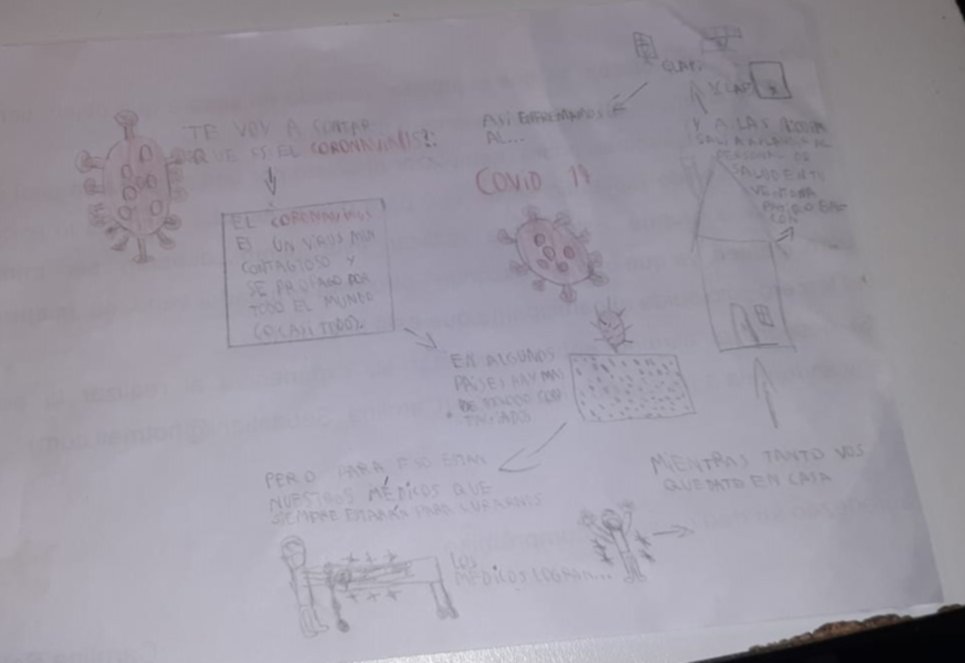 TE VOY A CONTAR
QUE ES EL CORONAVIRUS?.
EL CORONAVIRUS
ES UN VIRUS MUY
CONTAGIOSO Y
SE PROPAGO POR
TODO EL MUNDO
(O CASI TODO).
EN ALGUNOS
PAISES HAY MAS
DE
PERO PARA ESO ESTAN
NUESTROS MÉDICOS QUE
SIEMPRE ESTARÁN PARA CURARNOS
LOS
MÉDICOS LOGRAN...
MIENTRAS TANTO VOS
QUEDATE EN CASA
Y A LAS
SALI A APLAUDIR AL
PERSONAL DE
SALUD EN TU
VENTANA
PATIO O BAL
CON
CLAP!
CLAP
ASI ENFRENTAMOS
AL...
COVID 19